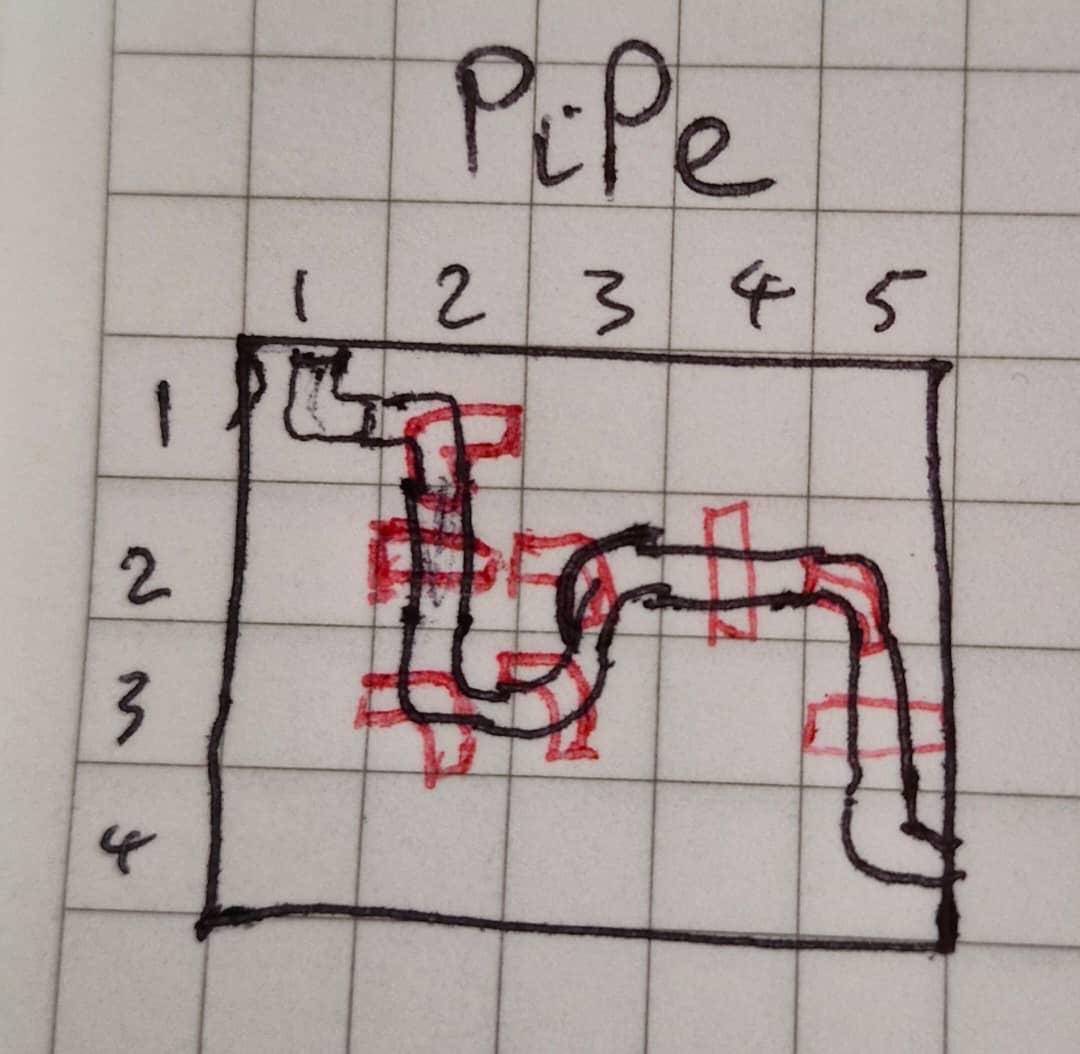 PiPe
1 2 3 4 5
1
2
3
4